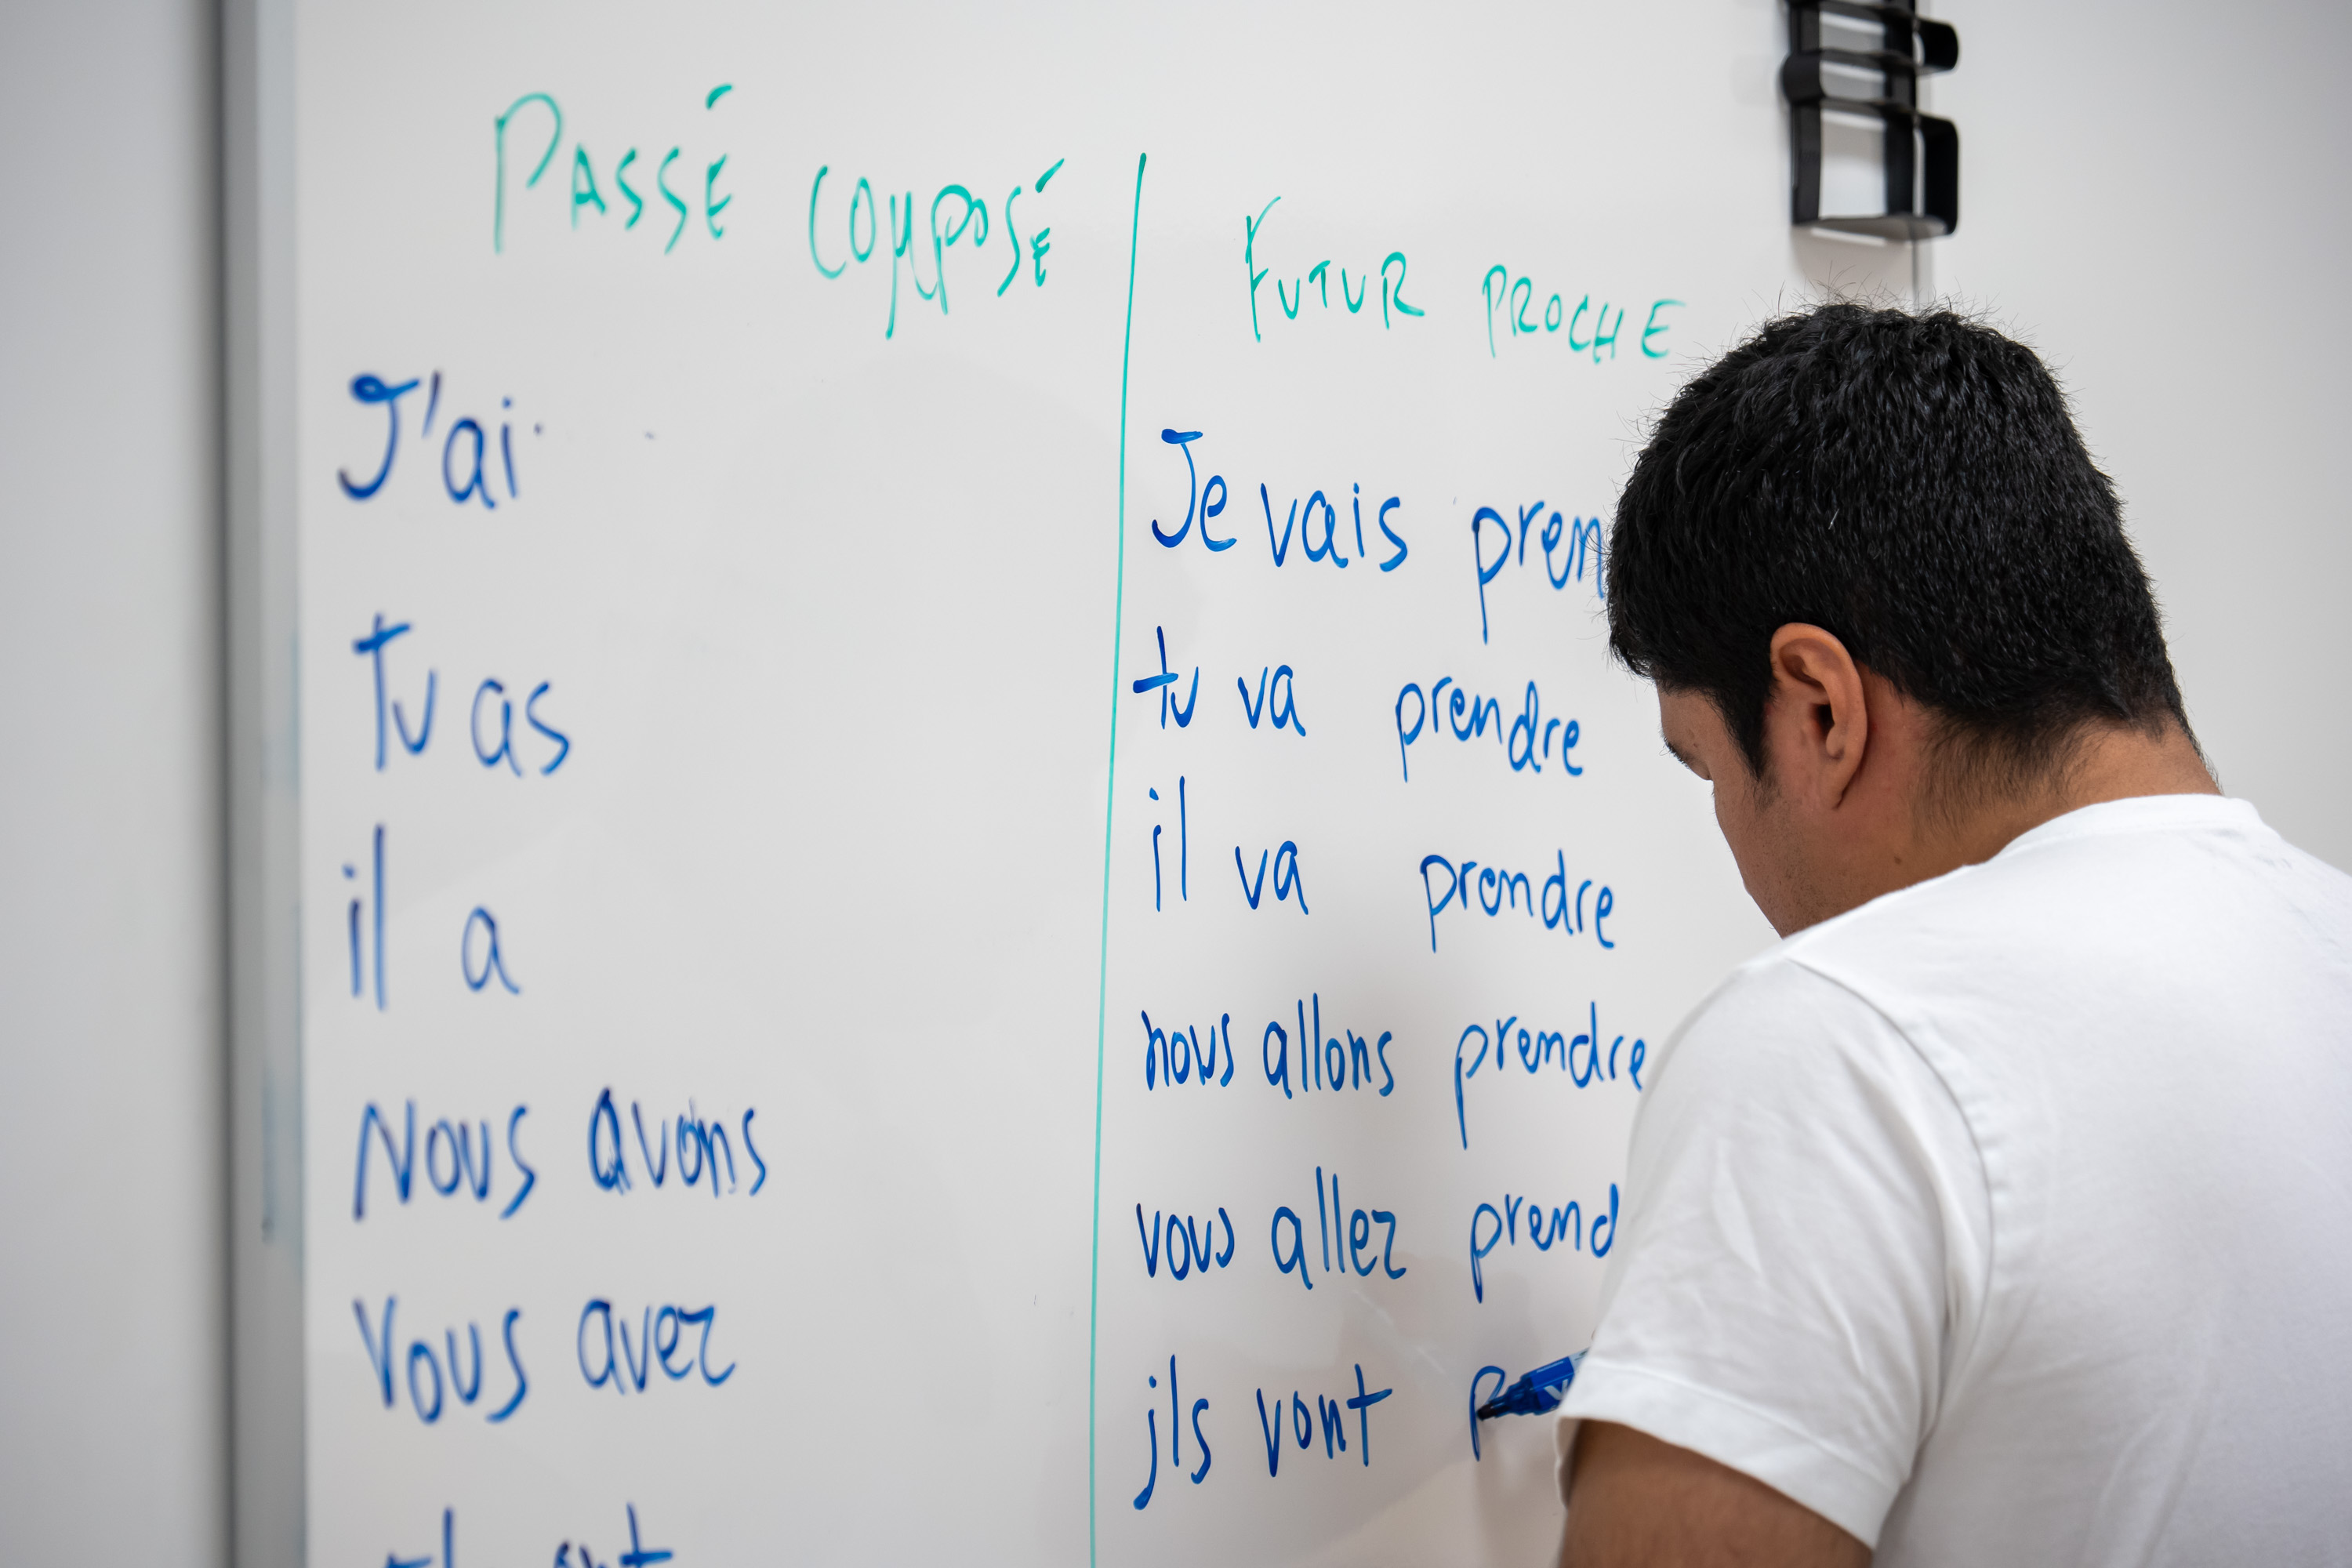 PASSÉ COMPOSÉ
J'ai
Tu as
il a
Nous avons
Vous avez
FUTUR PROCHE
Je vais pren
tu va prendre
il va prendre
nous allons prendre
vous allez prend
ils vont p